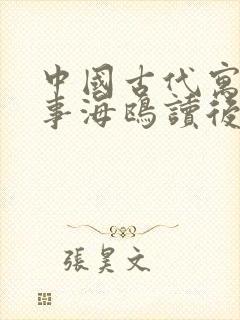 中國古代寓
事海鷗讀後
張昊文